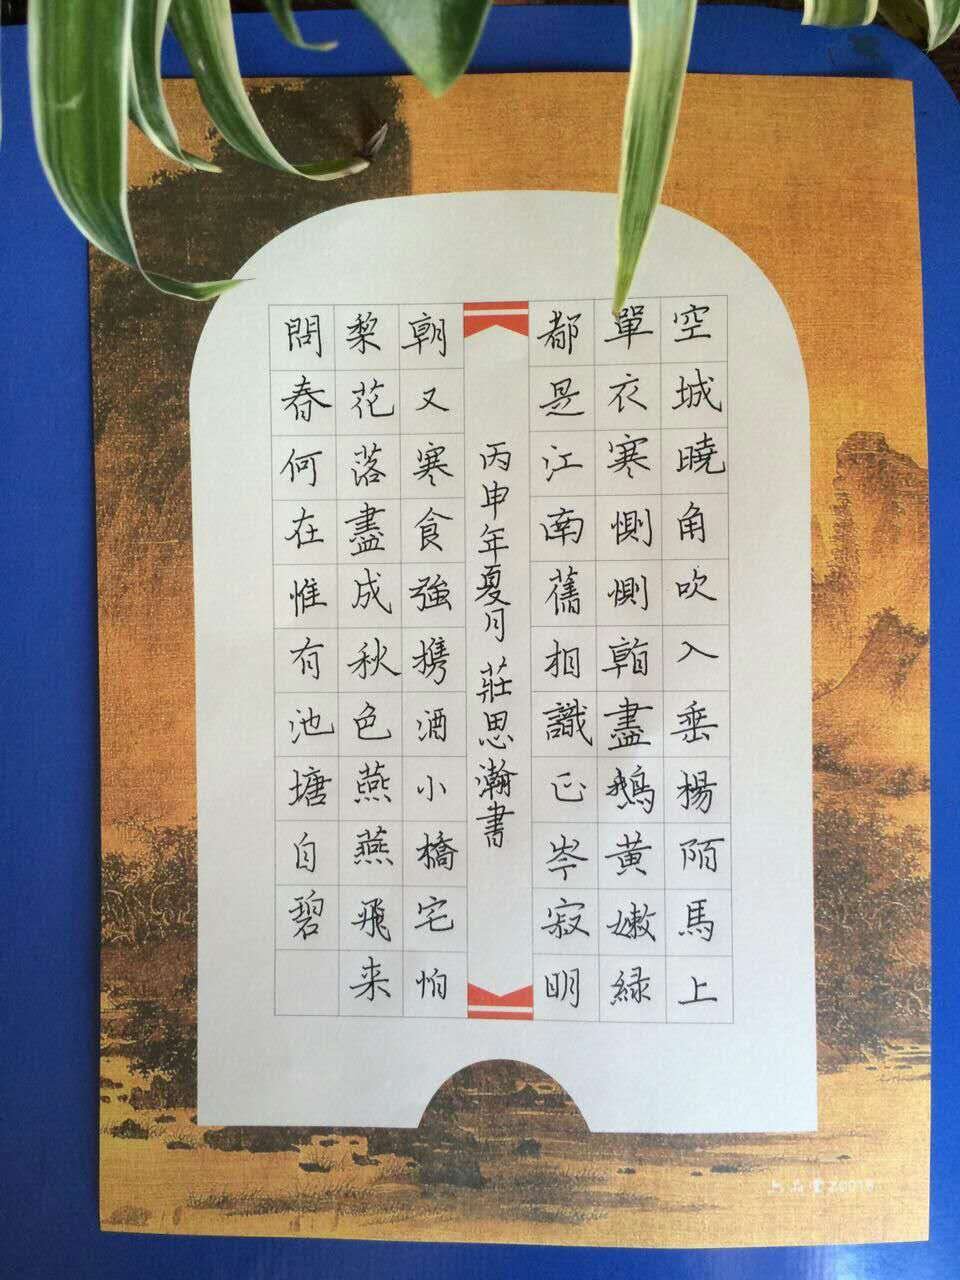 空城曉角吹入垂楊陌馬上
單衣寒惻惻看盡鵝黃嫩緑
都是江南舊相識正岑寂明
丙申年夏月 莊思瀚書
朝又寒食強携酒小橋宅怕
梨花落盡成秋色燕燕飛来
問春何在惟有池塘自碧
上品堂